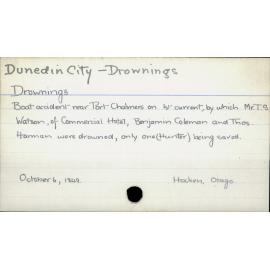 Dunedin City - Drownings
Drownings
Boat accident near Port Chalmers on by which Mr. T.S.
Watson, of Commercial Hotel, Benjamin Coleman and Thos.
Harman were drowned, only one (Hunter) being saved.
October 6, Hocken, Otago.